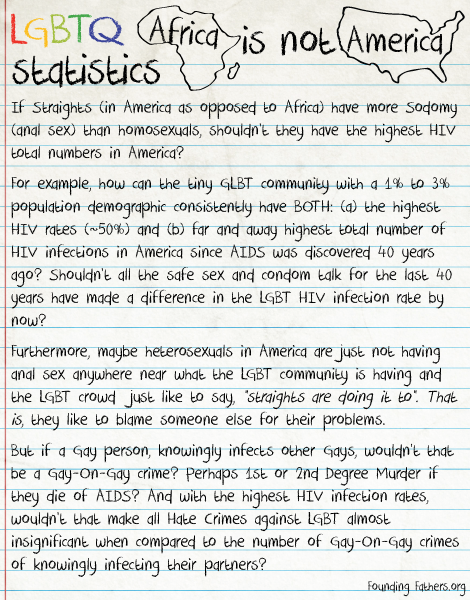 LGBTQ Africa is not America
statistics
If Straights (in America as opposed to Africa) have more Sodomy
(anal sex) than homosexuals, shouldn't they have the highest HIV
total numbers in America?
For example, how can the tiny GLBT community with a 1% to 3%
population demographic consistently have BOTH: (a) the highest
HIV rates (~50%) and (b) far and away highest total number of
HIV infections in America since AIDS was discovered 40 years
ago? Shouldn't all the safe sex and condom talk for the last 40
years have made a difference in the LGBT HIV infection rate by
now?
Furthermore, maybe heterosexuals in America are just not having
anal sex anywhere near what the LGBT community is having and
the LGBT crowd just like to say, "straights are doing it to". That
is, they like to blame someone else for their problems.
But if a Gay person, knowingly infects other Gays, wouldn't that
be a Gay-On-Gay crime? Perhaps 1st or 2nd Degree Murder if
they die of AIDS? And with the highest HIV infection rates,
wouldn't that make all Hate Crimes against LGBT almost
insignificant when compared to the number of Gay-On-Gay crimes
of knowingly infecting their partners?
Founding Fathers.org